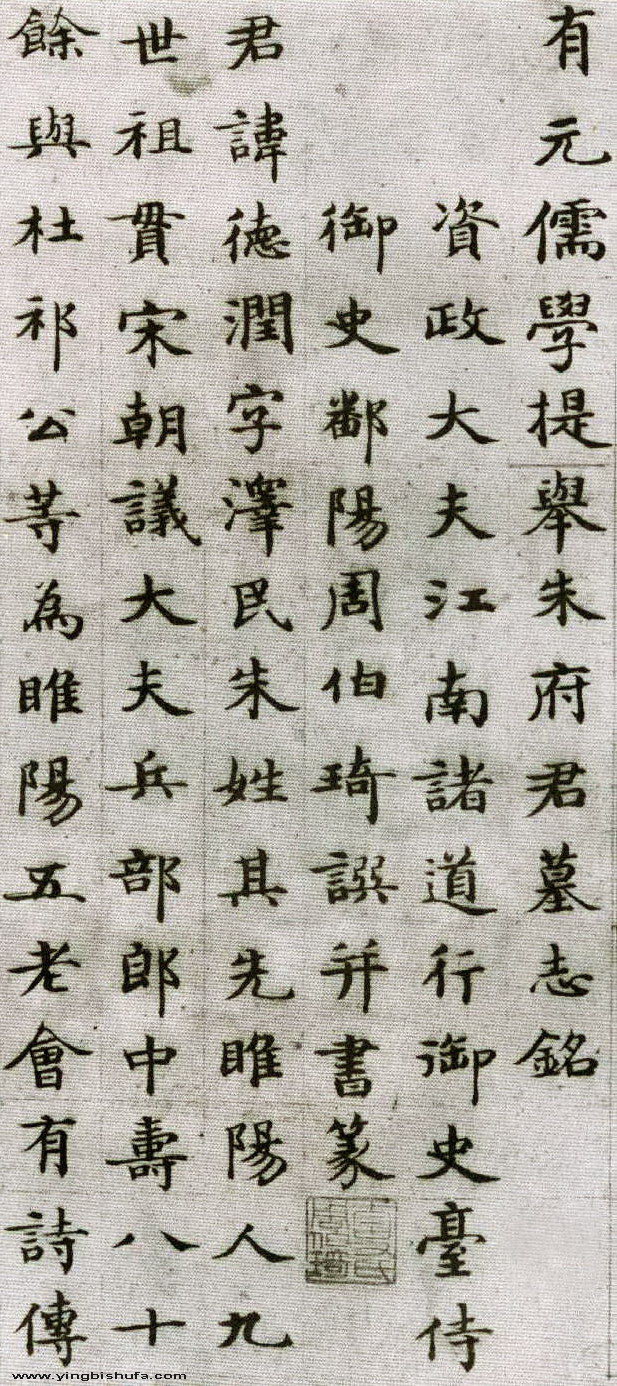 有元儒學提舉朱府君墓志銘
資政大夫江南諸道行御史臺侍
御史鄱陽周伯琦譔并書篆
君諱德潤字澤民朱姓其先睢陽人九
世祖貫宋朝議大夫兵部郎中壽八十
餘與杜祁公等為睢陽五老會有詩傳
www.yingbishufa.com